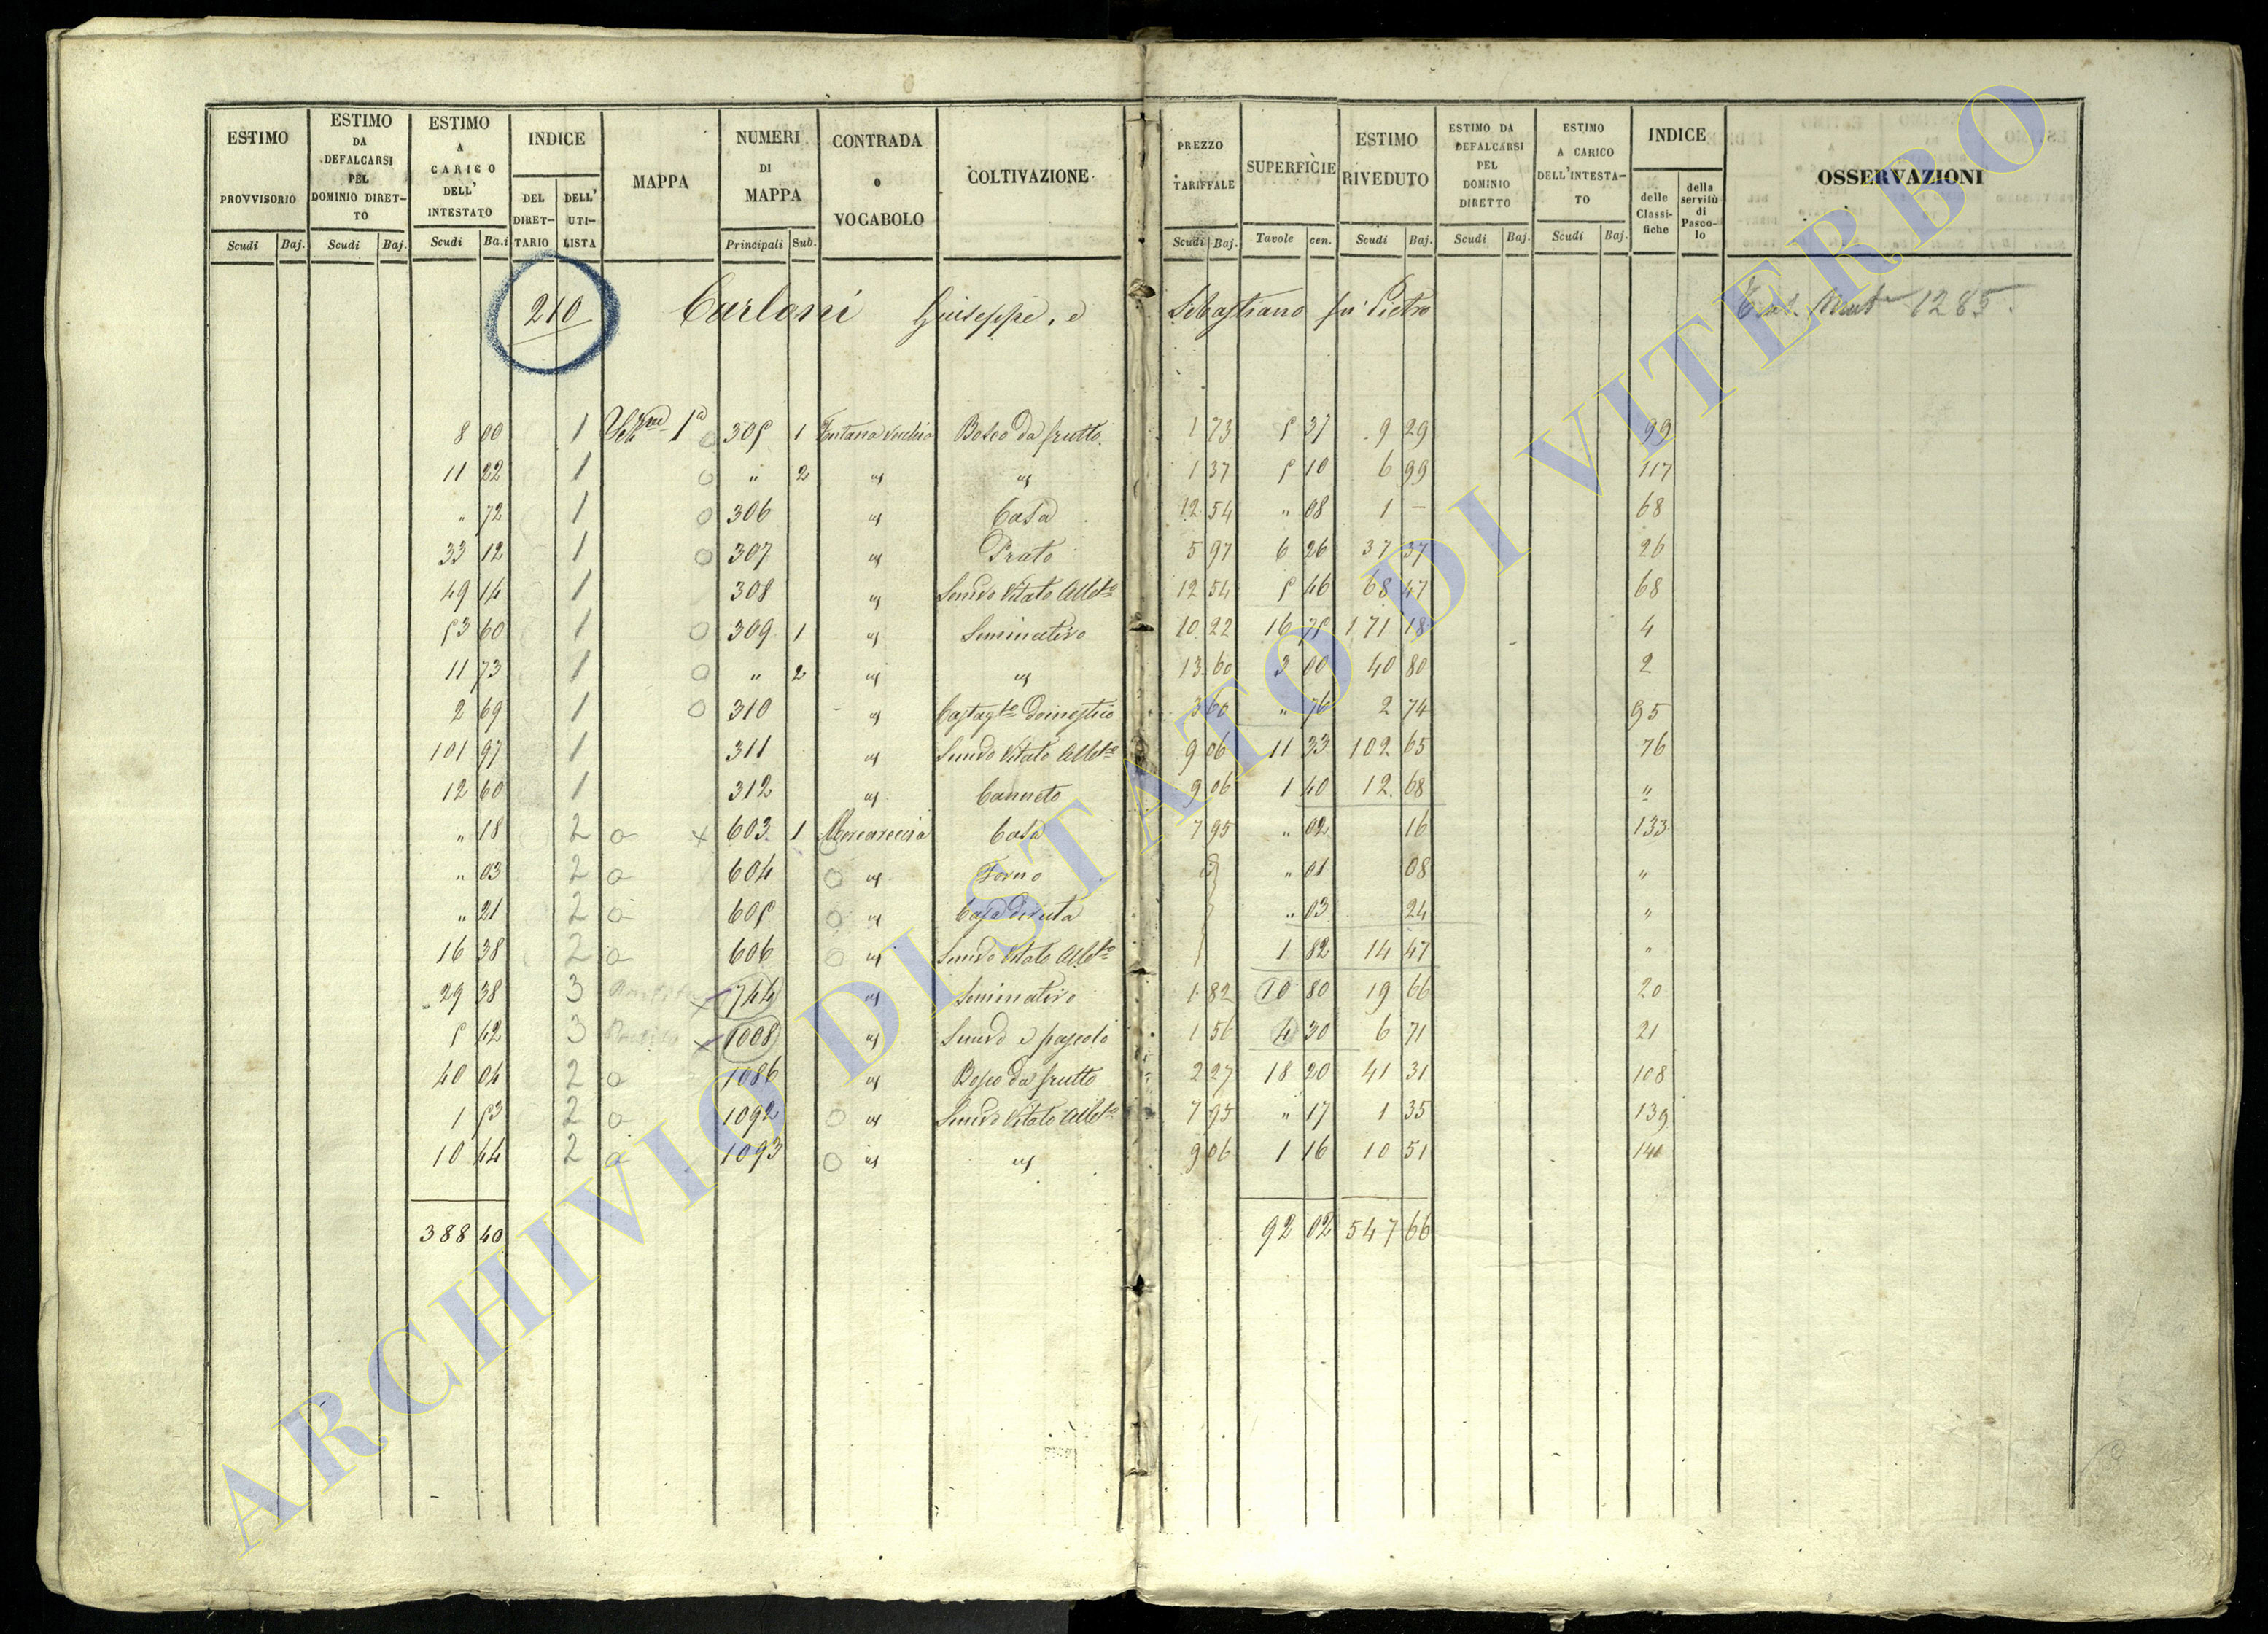 ESTIMO PROVVISORIO Scudi Baj. ESTIMO DA DEFALCARSI PEL DOMINIO DIRETTO Scudi Baj. ESTIMO A CARICO DELL' INTESTATO Scudi Ba.i INDICE DEL DIRETTARIO DELL' UTILISTA MAPPA NUMERI DI MAPPA Principali Sub. CONTRADA o VOCABOLO COLTIVAZIONE PREZZO TARIFFALE Scudi Baj. SUPERFICIE Tavole cen. ESTIMO RIVEDUTO Scudi Baj. ESTIMO DA DEFALCARSI PEL DOMINIO DIRETTO Scudi Baj. ESTIMO A CARICO DELL'INTESTATO Scudi Baj. INDICE delle Classifiche della servitù di Pascolo OSSERVAZIONI
210 Carloni Giuseppe, e Sebastiano fu Pietro 1285.
8 00 1 1ª 305 1 Fontana Vecchia Bosco da frutto 1 73 5 37 9 29 99
11 22 1 " 2 id id 1 37 5 10 6 99 117
" 72 1 306 id Casa 12 54 " 08 1 — 68
33 12 1 307 id Prato 5 97 6 26 37 37 26
49 14 1 308 id Semivo Vitato Allbto 12 54 5 46 68 47 68
53 60 1 309 1 id Seminativo 10 22 16 75 171 18 4
11 73 1 " 2 id id 13 60 3 00 40 80 2
2 69 1 310 id Castagto domestico 3 60 " 76 2 74 95
101 97 1 311 id Semivo Vitato Allbto 9 06 11 33 102 65 76
12 60 1 312 id Canneto 9 06 1 40 12 68 "
" 18 2 a x 603 1 Mercareccia Casa 7 95 " 02 16 133
" 03 2 a 604 id Forno " 01 08 "
" 21 2 a 605 id Casa diruta " 03 24 "
16 38 2 a 606 id Semivo Vitato Allbto 1 82 14 47 "
29 38 3 x 744 id Seminativo 1 82 10 80 19 66 20
5 42 3 x 1008 id Semivo e pascolo 1 56 4 30 6 71 21
40 04 2 a 1086 id Bosco da frutto 2 27 18 20 41 31 108
1 53 2 a 1092 id Semivo Vitato Allbto 7 95 " 17 1 35 139
10 44 2 a 1093 id id 9 06 1 16 10 51 141
388 40 92 02 547 66
ARCHIVIO DI STATO DI VITERBO